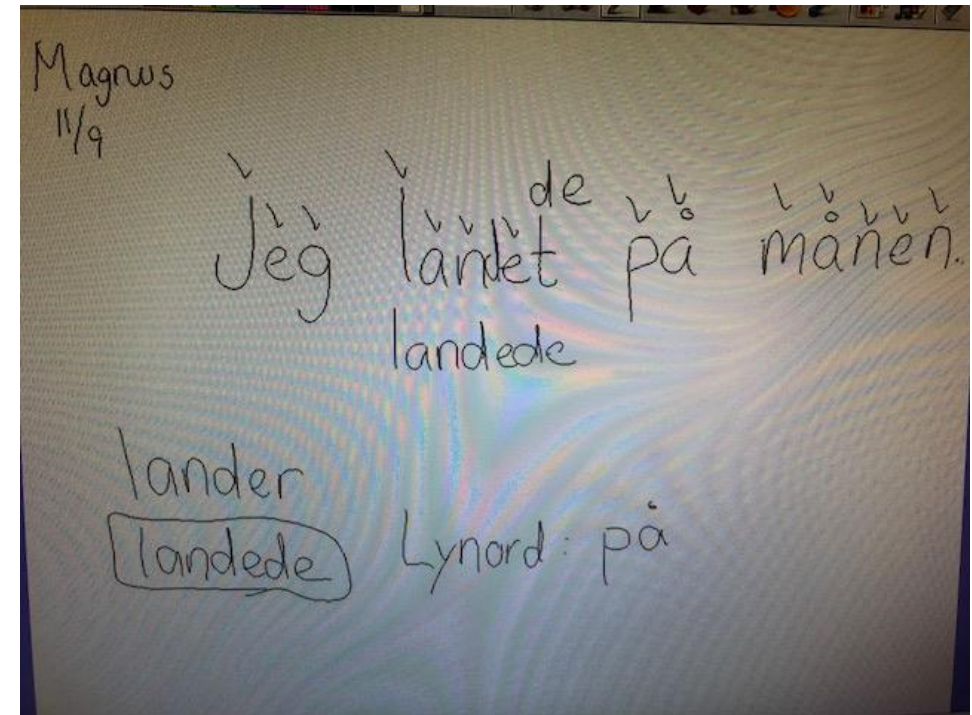 Magnus
11/9
de
Jeg landet på månen.
landede
lander
landede Lynord: på